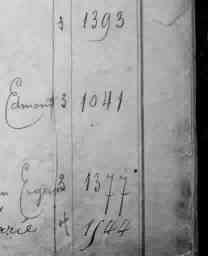 3 1393
Edmond 3 1041
Eugène 3 1377
4 1544